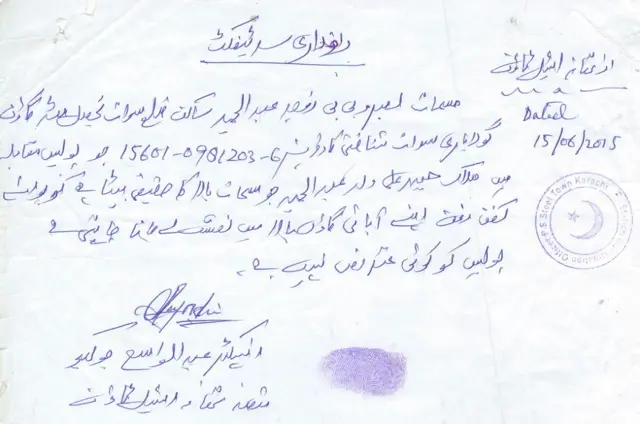 راہداری سرٹیفکیٹ
از تھانہ اسٹیل ٹاؤن
Dated
15/06/2015
مسمات بی بی زوجہ عبدالحمید ساکن ضلع سوات تحصیل
سوات شناختی کارڈ نمبر 15601-0981203-6 جو پولیس مقابلہ
میں ہلاک حیدر علی ولد عبدالحمید جو مسمات بالا کا حقیقی بیٹا ہے کو برائے
کفن دفن اپنے آبائی گاؤں بالا میں نعش لے جانا چاہتی ہے
پولیس کو کوئی عتراض نہیں ہے۔
انسپکٹر عبدالواسع جوکیو
تھانہ اسٹیل ٹاؤن
Officer P.S Steel Town Karachi